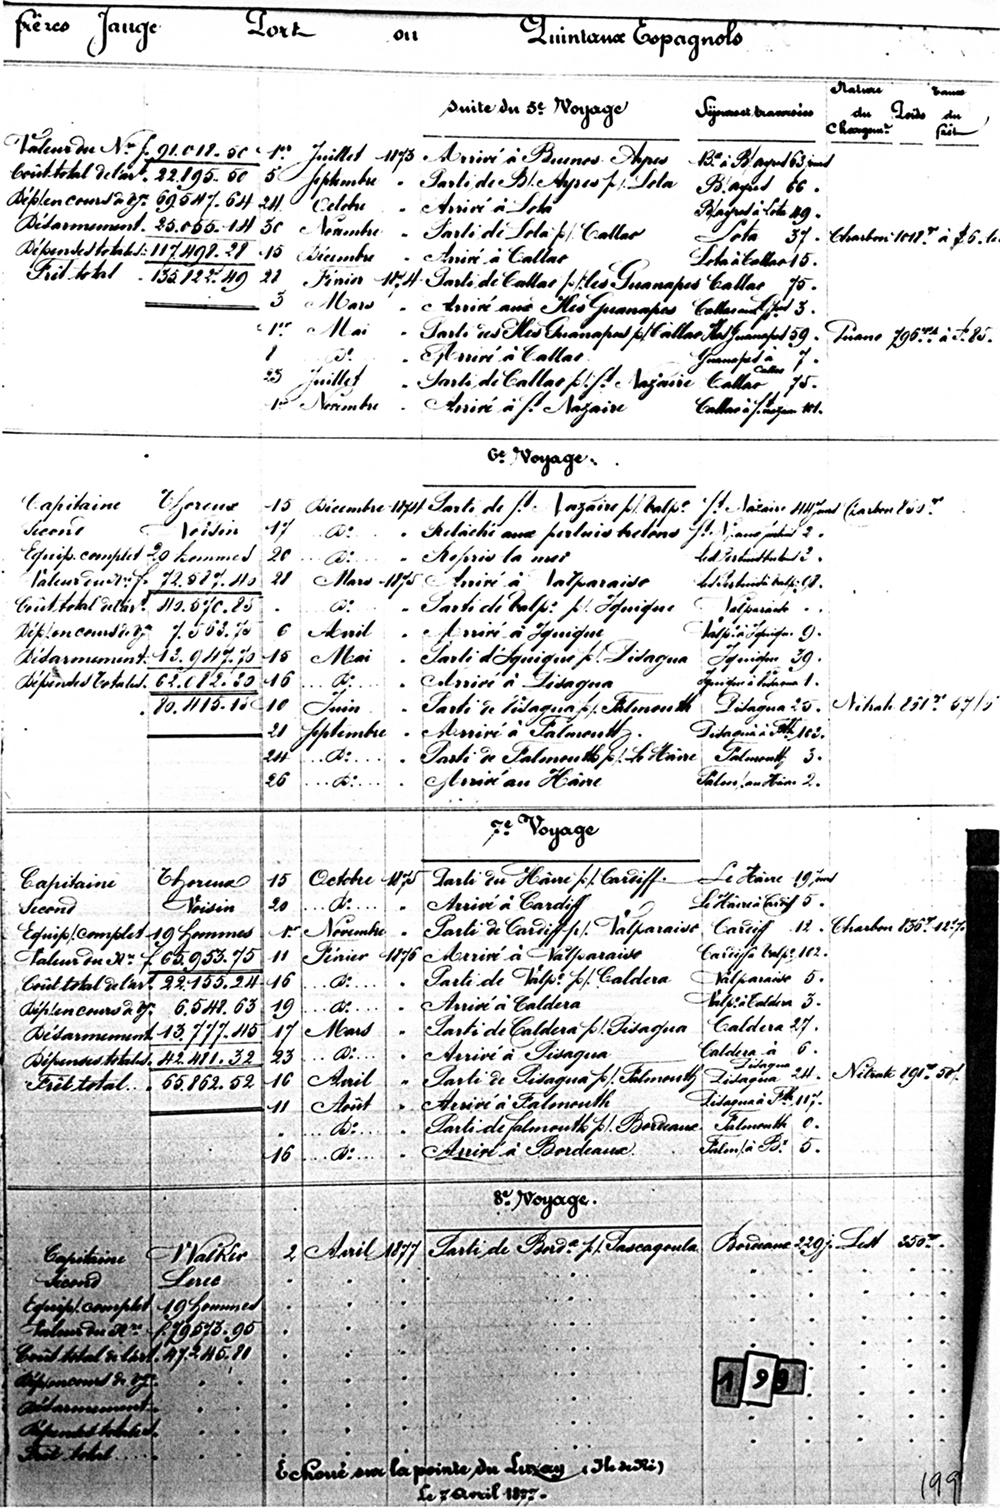 frères Jauge Port ou Quintaux Espagnols
Suite du 5e Voyage Séjours et traversées Nature du Chargemt. Poids Taux du frêt
Valeur du Nre f. 91.018.50 1er Juillet 1873 Arrivé à Buenos Ayres Bx à B/ayres 63 jours
Coût total de l'art. 22.895.50 5 Septembre " Parti de B/. Ayres p/. Lota B/ayres 66.
Dép/. en cours de vge 69.547.64 24 Octobre " Arrivé à Lota B/ayres à Lota 49.
Désarmement. 25.055.14 30 Novembre " Parti de Lota p/. Callao Lota 37. Charbon 1018 Tx à
Dépenses totales. 117.498.28 15 Décembre " Arrivé à Callao Lota à Callao 15.
Frêt total . 135.822.49 28 Février 1874 Parti de Callao p/. les Guanapes Callao 75.
3 Mars " Arrivé aux Iles Guanapes Callao aux 3.
1er Mai " Parti des Iles Guanapes p/. Callao Iles Guanapes 59. Guano 796 à f. 85.
8 Do. " Arrivé à Callao Guanapes à Callao 7.
23 Juillet " Parti de Callao p/. St. Nazaire Callao 75.
1er Novembre " Arrivé à St. Nazaire Callao à St. Nazaire 101.
6e Voyage.
Capitaine Thoreux 15 Décembre 1874 Parti de St. Nazaire p/. Valpo. St. Nazaire 44 jours Charbon
Second Voisin 17 Do. " Relâché aux pertuis bretons 2.
Equip. complet 20 hommes 20 Do. " Repris la mer 2.
Valeur du Nre f. 72.587.40 28 Mars 1875 Arrivé à Valparaiso 98.
Coût total de l'art. 40.570.85 . Do. " Parti de Valpo. p/. Iquique Valparaiso . .
Dép/. en cours de vge 7.563.75 6 Avril " Arrivé à Iquique Valpo. à Iquique 9.
Désarmement. 13.947.70 15 Mai " Parti d'Iquique p/. Pisagua Iquique 39.
Dépenses totales. 62.082.30 16 Do. " Arrivé à Pisagua Iquique à Pisagua 1.
. 80.415.15 10 Juin " Parti de Pisagua p/. Falmouth Pisagua 25. Nitrate 851
21 Septembre " Arrivé à Falmouth. Pisagua à Fth. 103.
24 Do. " Parti de Falmouth p/. Le Hâvre Falmouth 3.
26 Do. " Arrivé au Hâvre Falm/. au Hâvre 2.
7e Voyage
Capitaine Thoreux 15 Octobre 1875 Parti du Hâvre p/. Cardiff. Le Hâvre 19 jours
Second Voisin 20 Do. " Arrivé à Cardiff Le Hâvre à Cardiff 5.
Equip/. complet 19 hommes 1er Novembre " Parti de Cardiff p/. Valparaiso Cardiff 12. Charbon
Valeur du Nre f. 65.953.75 11 Février 1876 Arrivé à Valparaiso Cardiff à Valpo. 102.
Coût total de l'art. 22.155.24 16 Do. " Parti de Valpo. p/. Caldera Valparaiso 5.
Dép/. en cours de vge 6.548.63 19 Do. " Arrivé à Caldera Valpo. à Caldera 3.
Désarmement 13.777.45 17 Mars " Parti de Caldera p/. Pisagua Caldera 27.
Dépenses totales. 42.481.32 23 Do. " Arrivé à Pisagua Caldera à Pisagua 6.
Frêt total . . 65.862.52 16 Avril " Parti de Pisagua p/. Falmouth Pisagua 24. Nitrate
11 Août " Arrivé à Falmouth Pisagua à Fth. 117.
. Do. " Parti de falmouth p/. Bordeaux. Falmouth 0.
16 Do. " Arrivé à Bordeaux. Falm/. à Bx. 5.
8e Voyage.
Capitaine Walker 2 Avril 1877 Parti de Bordx p/. Pascagoula Bordeaux 229 j. Lest 350 Tx.
Second Lerec
Equip/. complet 19 hommes
Valeur du Nre f. 79.573.95
Coût total de l'art. 47.245.81
Dép/. en cours de vge
Désarmement.
Dépenses totales.
Frêt total
199
Echoué sur la pointe du Luzay (Ile de Ré)
Le 7 Avril 1877.
199